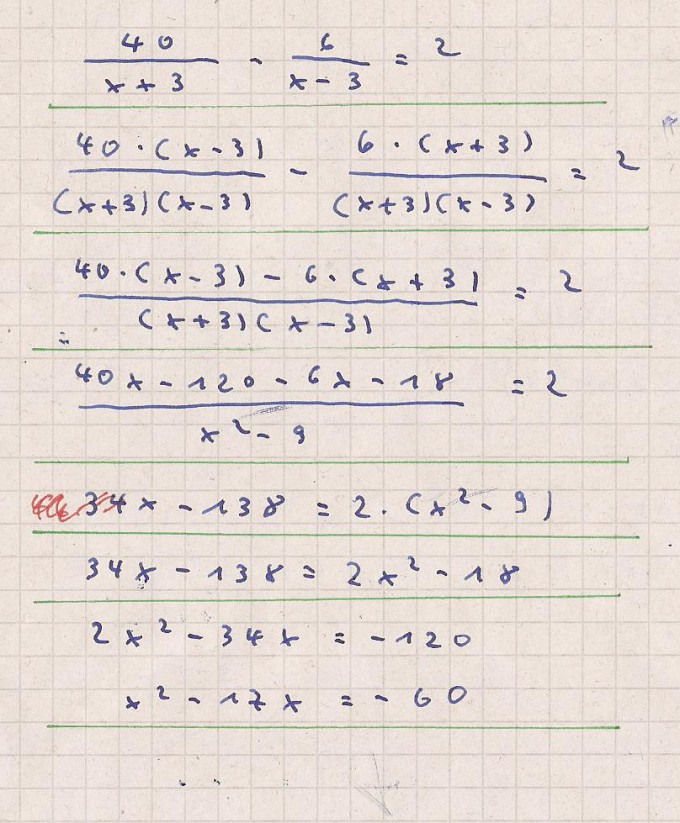 40/(x+3) - 6/(x-3) = 2
40·(x-3)/(x+3)(x-3) - 6·(x+3)/(x+3)(x-3) = 2
40·(x-3) - 6·(x+3)/(x+3)(x-3) = 2
40x - 120 - 6x - 18/x² - 9 = 2
34x - 138 = 2·(x² - 9)
34x - 138 = 2x² - 18
2x² - 34x = -120
x² - 17x = -60